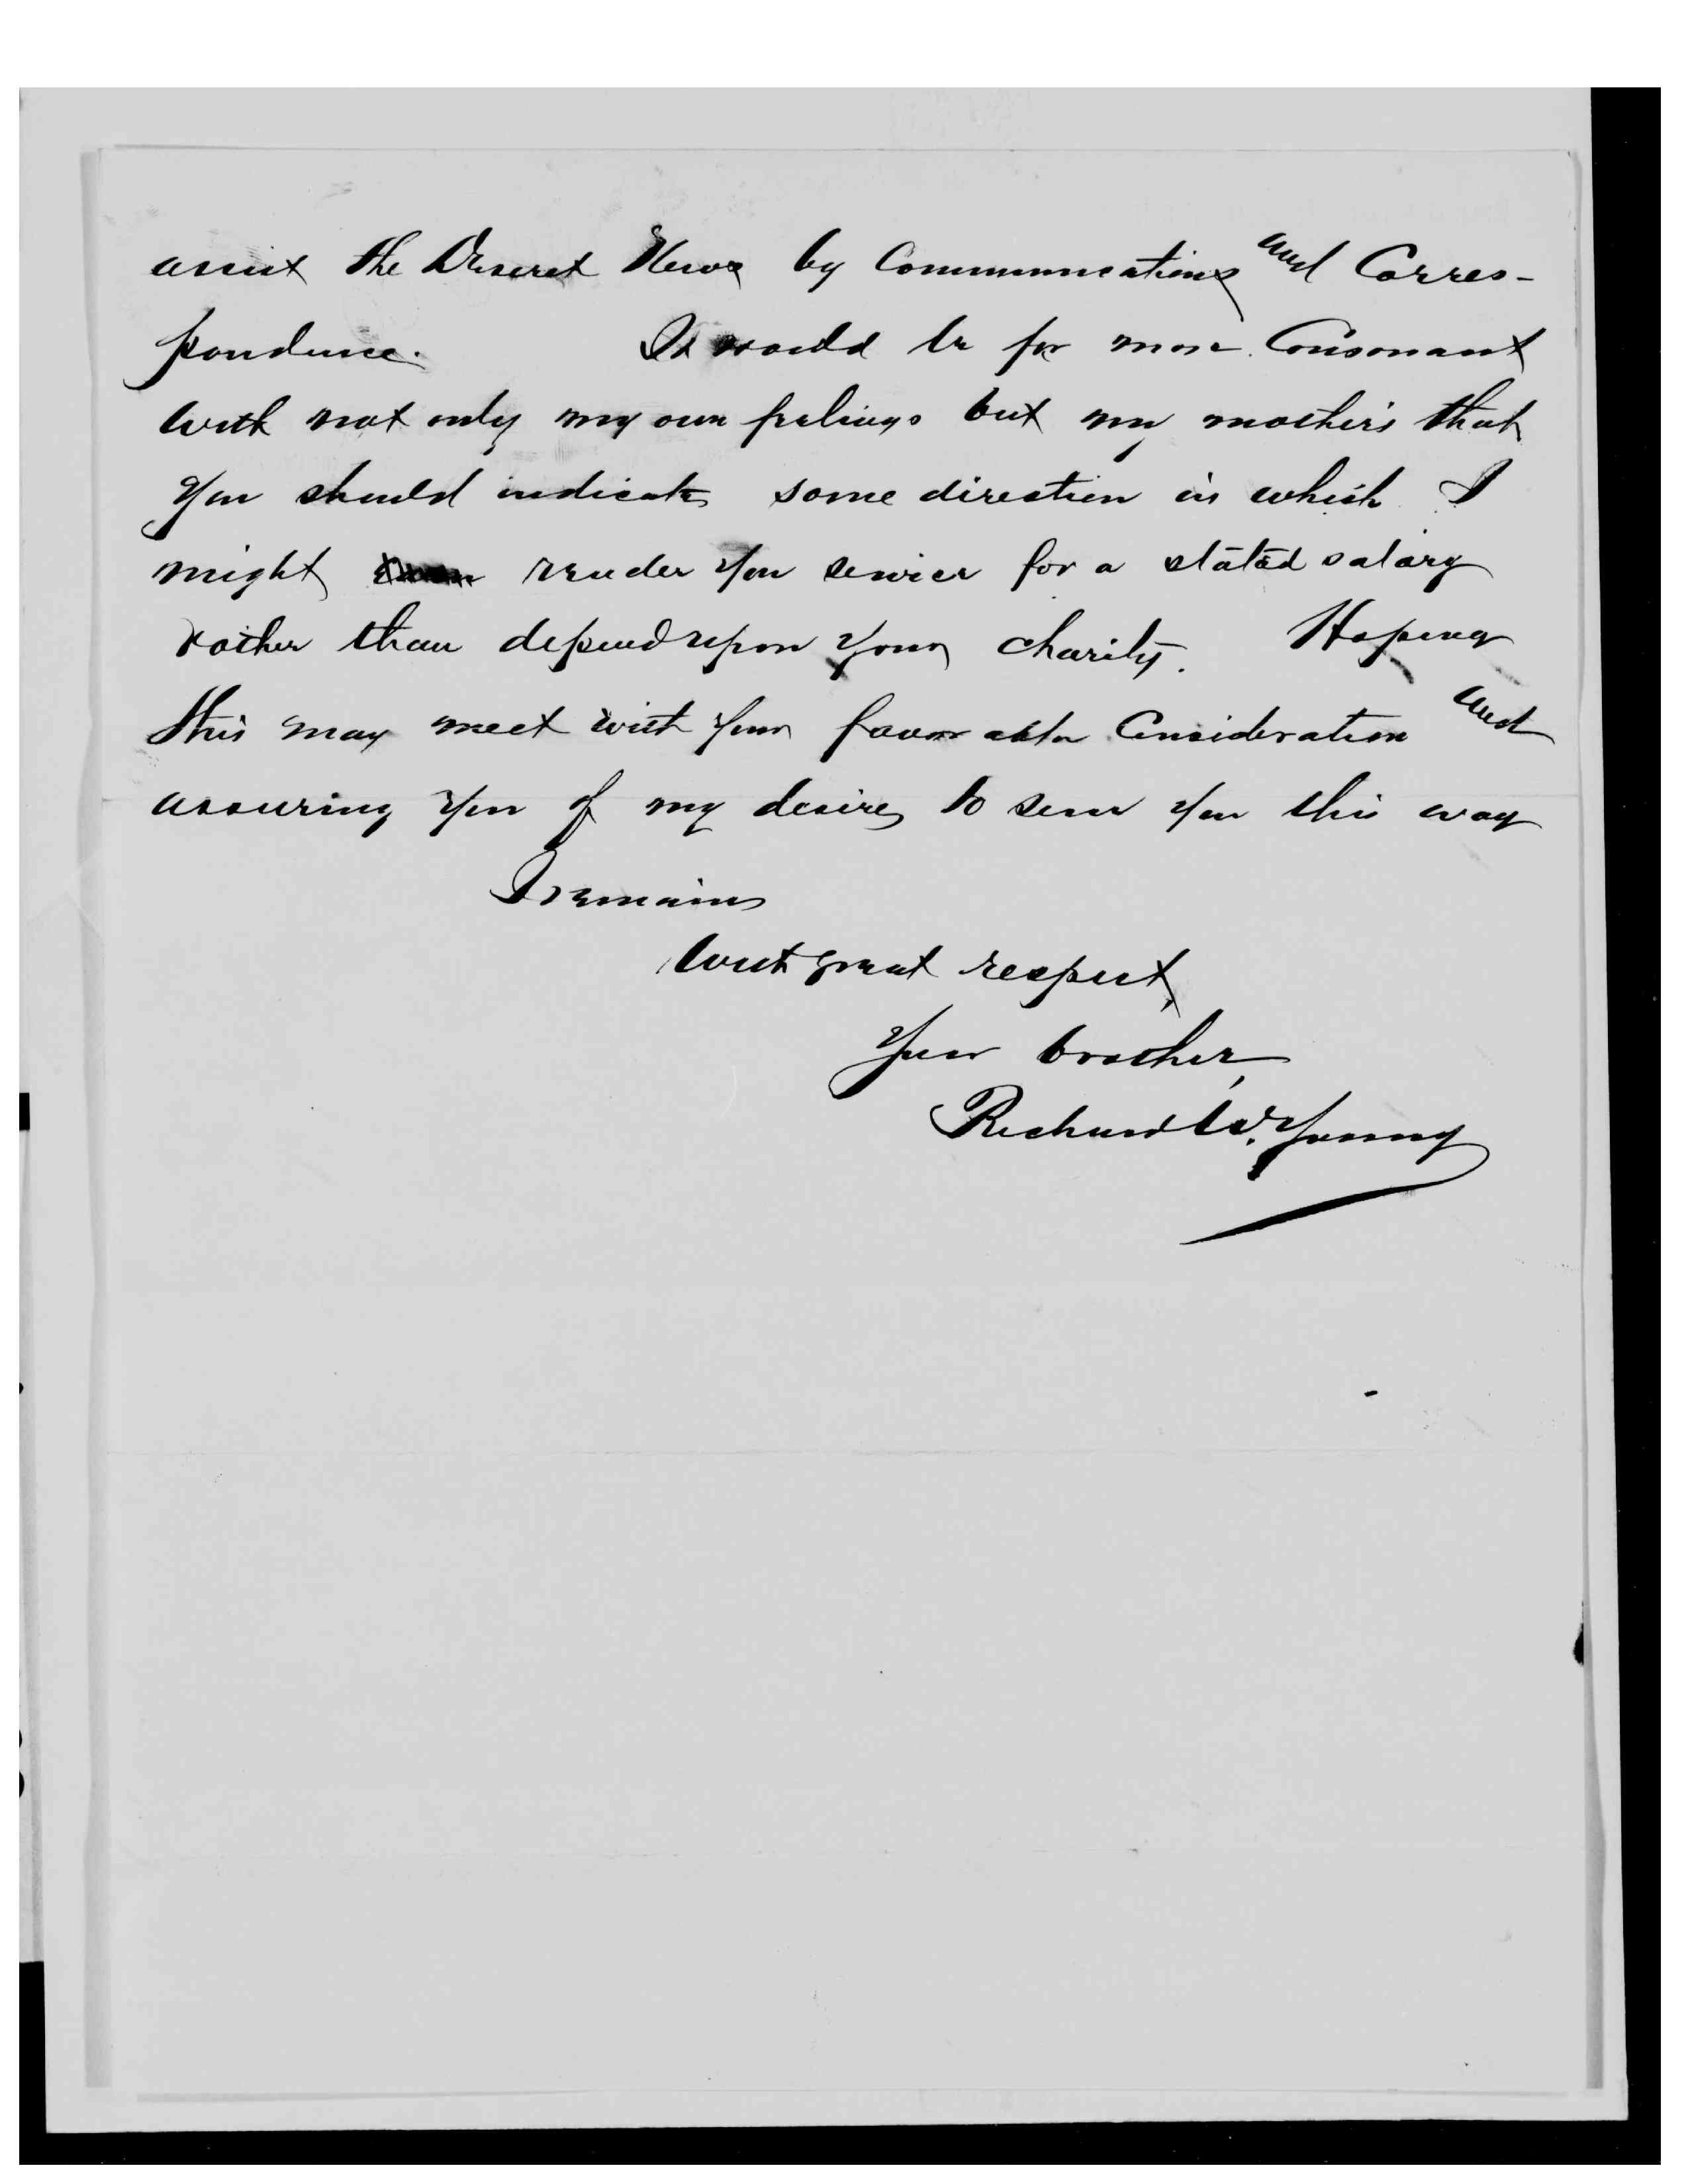 assist the Deseret News by Communications and Corres-
pondence. It would be far more Consonant
with not only my own feelings but my mother's that
you should indicate some direction in which I
might render you service for a stated salary
rather than depend upon your charity. Hoping
this may meet with your favorable Consideration and
assuring you of my desire to serve you this way
I remain
With great respect,
Your brother,
Richard W. Young